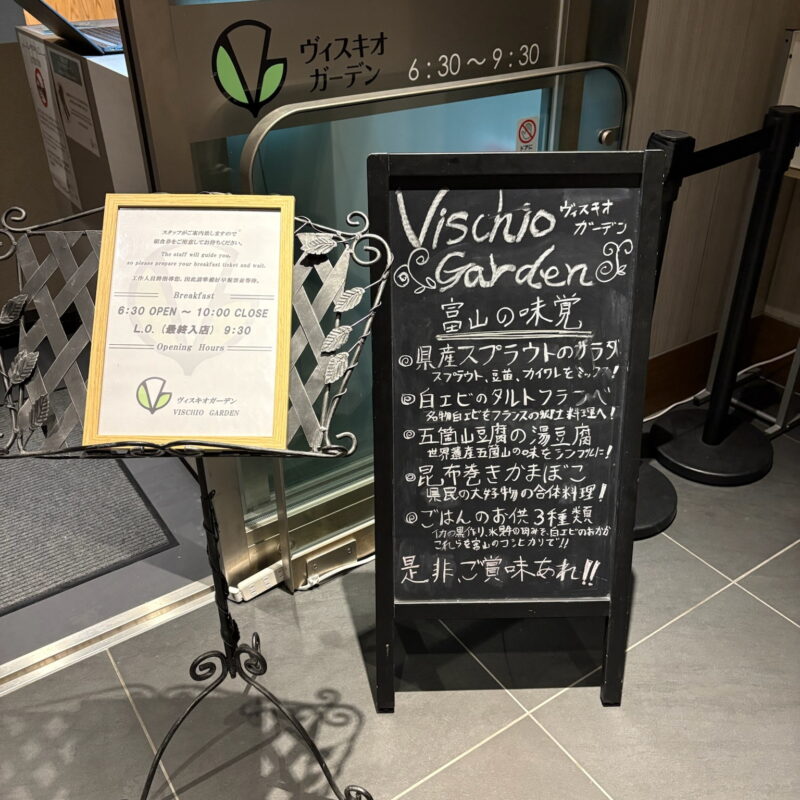 ヴィスキオ
ガーデン
6:30～9:30
スタッフがご案内致しますので
朝食券をご用意してお待ちください。
The staff will guide you,
so please prepare your breakfast ticket and wait.
Breakfast
6:30 OPEN ～ 10:00 CLOSE
L.O. (最終入店) 9:30
Opening Hours
ヴィスキオガーデン
VISCHIO GARDEN
Vischio ヴィスキオ
ガーデン
Garden
富山の味覚
◎県産スプラウトのサラダ
スプラウト、豆苗、カイワレをミックス!
◎白エビのタルトフランベ
名物白エビをフランスの郷土料理へ!
◎五箇山豆腐の湯豆腐
世界遺産五箇山の味をシンプルに!
◎昆布巻きかまぼこ
県民の大好物の合体料理!
◎ごはんのお供3種類
イカの黒作り、氷見の刻みを、白エビのおかか
これらを富山のコシヒカリで!!
是非、ご賞味あれ!!